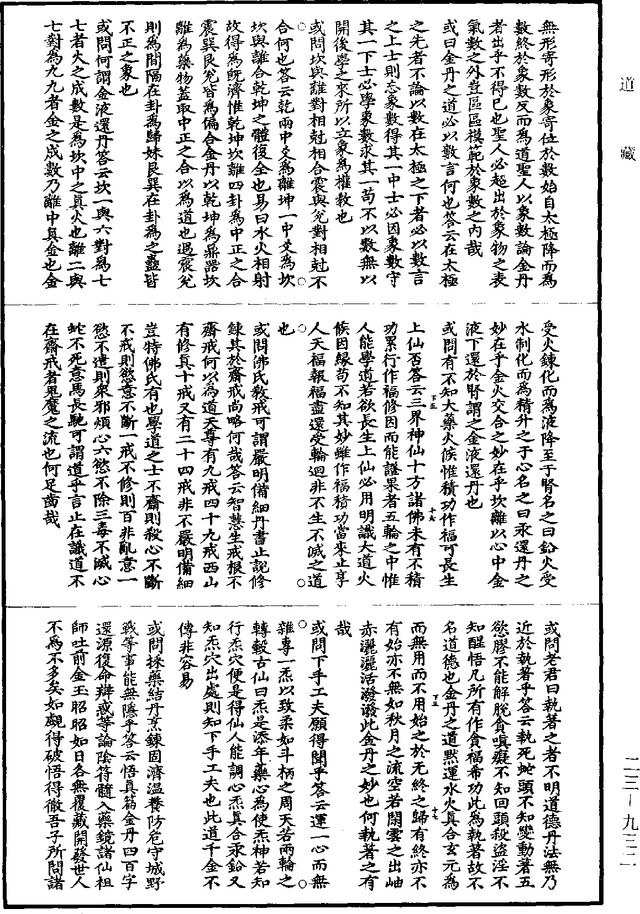 道藏
無形寄形於象寄位於數始自太極降而為
數終於象數反而為道聖人以象數論金丹
者出乎不得已也聖人必超出於象物之表
氣數之外豈區區模範於象數之內哉
或曰金丹之道必以數言何也答云在太極
之先者不論以數在太極之下者必以數言
之上士則忘象數得其一中士必因象數守
其一下士必學象數求其一苟不以數無以
開後學之來所以立象為權教也
或問坎與離對相尅相合震與兌對相尅不
合何也答云乾兩中爻為離坤一中爻為坎
坎與離合乾坤之體復全也易曰水火相射
故得為既濟惟乾坤坎離四卦為中正之合
震巽艮兌皆為偏合金丹以乾坤為鼎器坎
離為藥物蓋取中正之合以為道也遇震兌
則為間隔在卦為歸妹艮巽在卦為之蠱皆
不正之象也
或問何謂金液還丹答云坎一與六對為七
七者火之成數是為坎中之真火也離二與
七對為九九者金之成數乃離中真金也金
受火鍊化而為液降至于腎名之曰鉛火受
水制化而為精升之于心名之曰汞還丹之
妙在乎金火交合之妙在乎坎離以心中金
液下還於腎謂之金液還丹也
或問有不知大藥火候惟積功作福可長生
上仙否答云三界神仙十方諸佛未有不積
功累行作福修因而能證果者五輪之中惟
人能學道若欲長生上仙必用明識大道火
候因緣苟不知其妙雖作福積功當來止享
人天福報福盡還受輪迴非不生不滅之道
也
或問佛氏教戒可謂嚴明備細丹書止說修
鍊其於齋戒尚略何哉答云智慧生戒根不
齋戒何以為道天尊有九戒四十九戒西山
有修真十戒又有二十四戒非不嚴明備細
豈特佛氏有也學道之士不齋則殺心不斷
不戒則慾意不斷一戒不修則百非亂意一
慾不世則衆邪煩心六慾不除三毒不滅心
蛇不死意馬長馳可謂道乎言止在識道不
在齋戒者鬼魔之流也何足齒哉
或問老君曰執著之者不明道德丹法無乃
近於執著乎答云執死蛇頭不知變動著五
慾膠不能解脫貪嗔癡不知回頭殺盜淫不
知醒悟凡所有作貪福希功此為執著故不
名道德也金丹之道默運水火真合玄元為
而無用而不用始之於无終之歸有終亦不
有始亦不無如秋月之流空若閑雲之出岫
赤灑灑活潑潑此金丹之妙也何執著之有
哉
或問下手工夫願得聞乎答云運一心而無
雜專一炁以致柔如斗柄之周天若兩輪之
轉轂古仙曰炁是添年藥心為使炁神若知
行炁穴便是得仙人能調心炁真合汞鉛又
知炁穴出處則知下手工夫也此道千金不
傳非容易
或問採藥結丹烹鍊固濟溫養防危守城野
戰等事能無隱乎答云悟真篇金丹四百字
還源復命辨惑等論陰符髓入藥鏡諸仙祖
師吐前金玉昭昭如日各無覆藏開發世人
不為不多矣如覷得破悟得徹吾子所問諸
二三－九三二